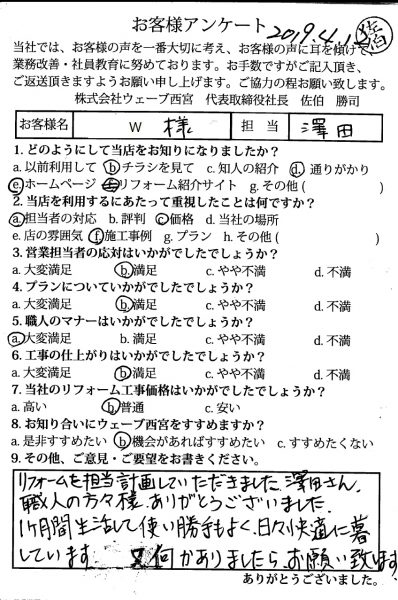 お客様アンケート 2019.4.1
当社では、お客様の声を一番大切に考え、お客様の声に耳を傾けて
業務改善・社員教育に努めております。お手数ですがご記入頂き、
ご返送頂きますようお願い申し上げます。ご協力の程お願い致します。
株式会社ウェーブ西宮 代表取締役社長 佐伯 勝司
お客様名 W 様 担当 澤田
1. どのようにして当店をお知りになりましたか?
a. 以前利用して b. チラシを見て c. 知人の紹介 d. 通りがかり
e. ホームページ f. リフォーム紹介サイト g. その他( )
2. 当店を利用するにあたって重視したことは何ですか?
a. 担当者の対応 b. 評判 c. 価格 d. 当社の場所
e. 店の雰囲気 f. 施工事例 g. プラン h. その他( )
3. 営業担当者の応対はいかがでしたでしょうか?
a. 大変満足 b. 満足 c. やや不満 d. 不満
4. プランについていかがでしたでしょうか?
a. 大変満足 b. 満足 c. やや不満 d. 不満
5. 職人のマナーはいかがでしたでしょうか?
a. 大変満足 b. 満足 c. やや不満 d. 不満
6. 工事の仕上がりはいかがでしたでしょうか?
a. 大変満足 b. 満足 c. やや不満 d. 不満
7. 当社のリフォーム工事価格はいかがでしたでしょうか?
a. 高い b. 普通 c. 安い
8. お知り合いにウェーブ西宮をすすめますか?
a. 是非すすめたい b. 機会があればすすめたい c. すすめたくない
9. その他、ご意見・ご要望をお書きください。
リフォームを担当計画していただきました、澤田さん、
職人の方々様、ありがとうございました。
1ヶ月間生活して使い勝手もよく、日々快適に暮
しています 又何かありましたら、お願い致します
ありがとうございました。